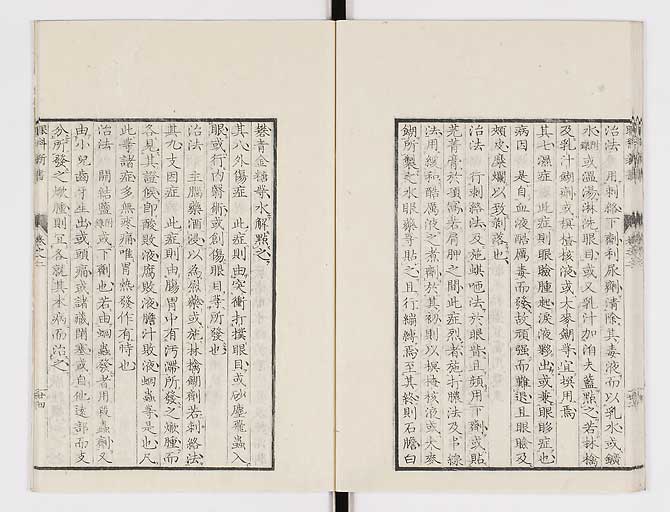 治法 用刺絡下劑利尿劑清除其毒液而以乳水或鑛
水或溫湯淋洗眼目或又乳汁加洎夫藍點之若林檎
及乳汁餬劑或榅桲核液或大麥餬等宜撰用焉
其七濕症 此症則眼瞼腫起淚液夥出或兼眼眵症也
病因 是自血液酷厲毒而發故頑強而難退且眼瞼及
頰皮糜爛以致剝落也
治法 行刺絡法及施蜞咂法於眼眥且頻用下劑或貼
芫菁膏於項窩若肩胛之間此症烈者施打膿法及串線
法用緩和酷厲液之煮劑於其初則以榅桲核液或大麥
餬所製之水眼藥等貼之且行繃縛焉至其終則石膽白
礬青金糖等水解點之
其八外傷症 此症則由突衝打撲眼目或砂塵飛蟲入
眼或行內翳術或創傷眼目等所發也
治法 主腦藥酒浸以為熨藥或施林檎餬劑若刺絡法
其九支因症 此症則由腸胃中有污濡所發之焮腫而
各見其證候即酸敗液腐敗液膽汁敗液蛔蟲等是也凡
此等諸症多無疼痛唯胃熱發作有時也
治法 開結鹽或下劑也若由蛔蟲發者用殺蟲劑又
由小兒齒牙生出或頭痛或諸藏閉塞或自他遠部而支
分所發之焮腫則宜各就其本病而治之
眼科新書